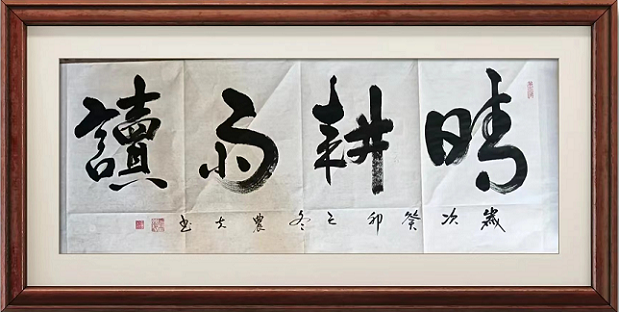 晴耕雨讀
歲次癸卯之冬農夫书